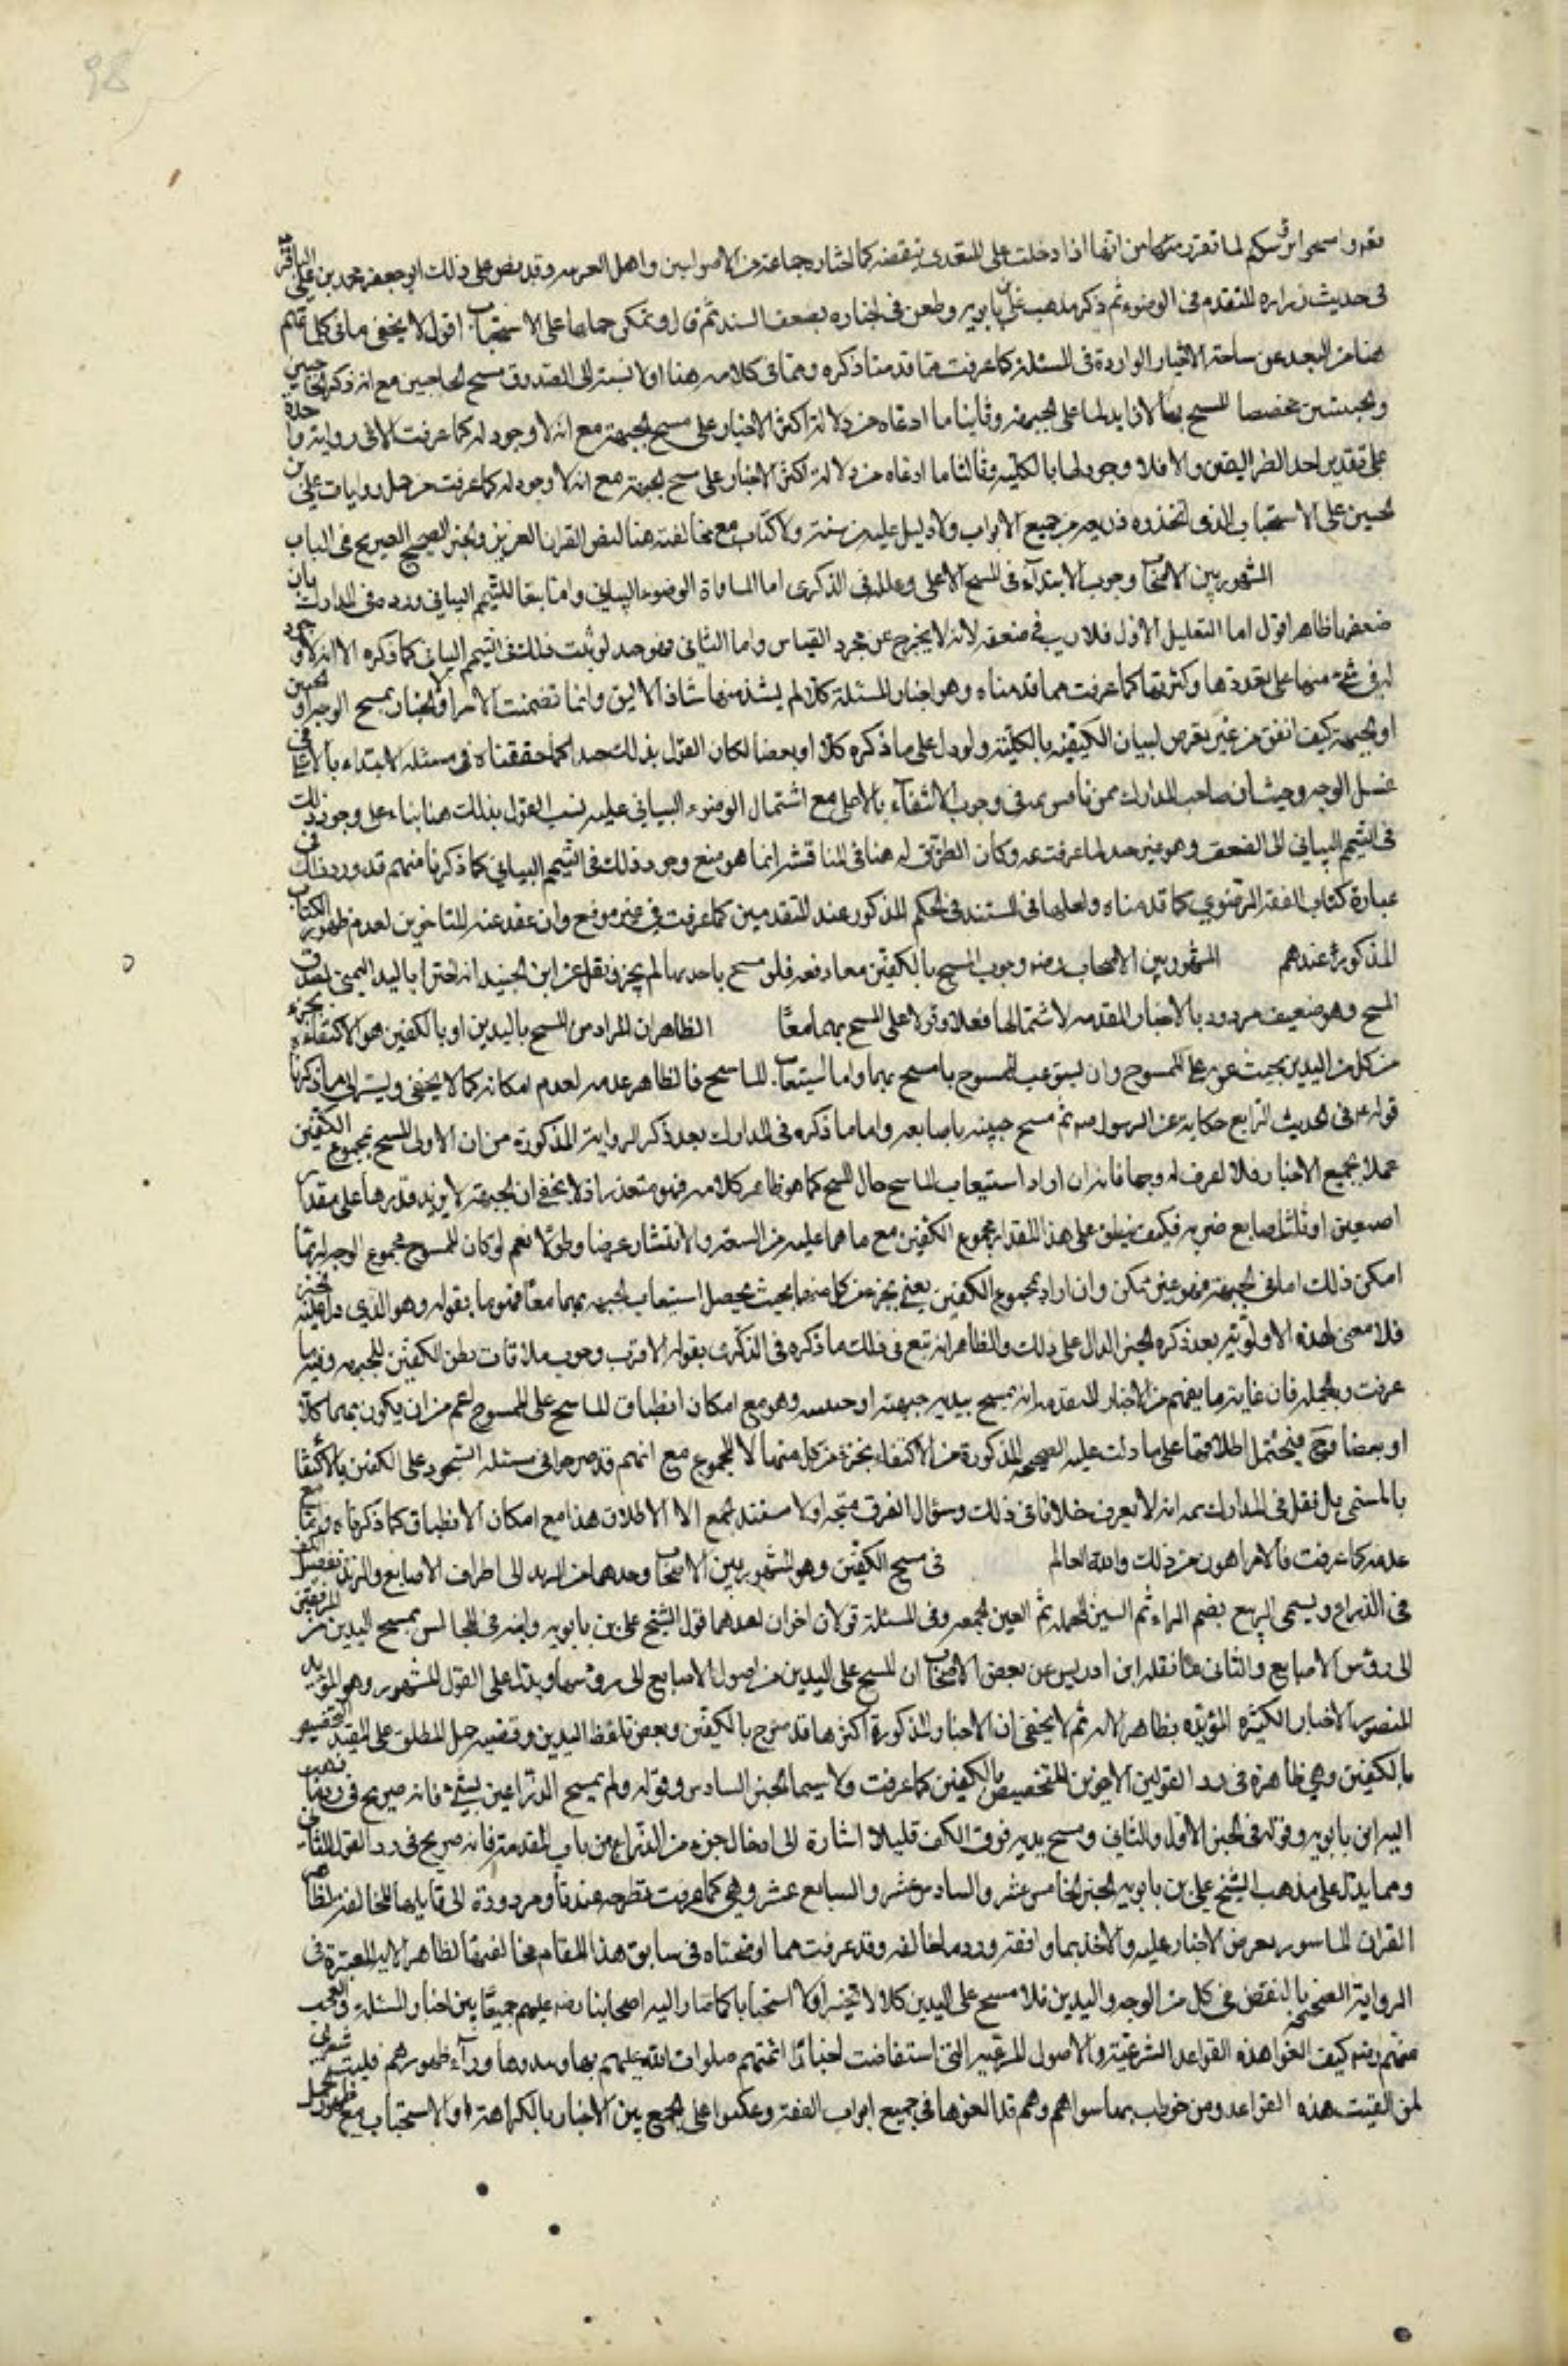 98
لما تقرر منها من انها اذا دخلت على المتعدى تبعضه كما اختاره جماعة من الاصوليين واهل العربيه وقد نص على ذلك ابو جعفر محمد بن على الباقر
فى حديث زراره المتقدم فى الوضوء ثم ذكر مذهب على بن بابويه وطعن فى اخباره بضعف السند ثم قال ويمكن حملها على الاستحباب اقول لا يخفى ما فى كلامه
هنا من البعد عن ساحة الاخبار الواردة فى المسئلة كما عرفت مما قدمنا ذكره ومما فى كلامه هنا اولا نسبته الى الصدوق مسح الحاجبين مع انه ذكر
والجبينين مخصصا للمسح بها لا زايد لها على الجبهة وثانيا ما ادعاه من دلالة اكثر الاخبار على مسح الجبهة مع انه لا وجود له كما عرفت الا فى رواية واحدة
على تقدير احد الطريقين والا فلا وجود لها بالكليه وثالثا ما ادعاه من دلالة اكثر الاخبار على مسح الجبهة مع انه لا وجود له كما عرفت من حمل روايات على بن
الحسين على الاستحباب الذى اتخذوه ذريعه فى جميع الابواب ولا دليل عليه من سنة ولا كتاب مع مخالفته هنا لنص القران العزيز والخبر الصحيح الصريح فى الباب
المشهور بين الاصحاب وجوب الابتداء فى المسح بالاعلى وعلله فى الذكرى اما لمساواة الوضوء البيانى واما تبعا للتيمم البيانى ورده فى المدارك بان
ضعفها ظاهر اقول اما التعليل الاول فلا ريب فى ضعفه لانه لا يخرج عن مجرد القياس واما الثانى فهو جيد لو ثبت ذلك فى التيمم البيانى كما ذكره الا انه لا وجود
له فى شئ منها على تعددها وكثرتها كما عرفت مما قدمناه وهو اخبار المسئلة كلا لم يشذ منها شاذ الا لين وانما تضمنت الامر او الاخبار بمسح الوجه او الجبين
او الجبهة كيف اتفق من غير تعرض لبيان الكيفيه بالكلية ولو دل على ما ذكره كلا او بعضا لكان القول بذلك جيدا كما حققناه فى مسئلة الابتداء بالاعلى فى
غسل الوجه وحيث ان صاحب المدارك ممن ناقش ثمه فى وجوب الابتداء بالاعلى مع اشتمال الوضوء البيانى عليه نسب القول بذلك هنا بناء على وجود ذلك
فى التيمم البيانى الى الضعف وهو غير جيد لما عرفت ثمه وكان الطريق له هنا فى المناقشه انما هو منع وجود ذلك فى التيمم البيانى كما ذكرنا نعم قد ورد ذلك فى
عبارة كتاب الفقه الرضوى كما قدمناه ولعلها فى المستند فى الحكم المذكور عند المتقدمين كما عرفت فى غير موضع وان غفل عنه المتاخرين لعدم ظهور الكتاب
المذكورة عندهم المشهور بين الاصحاب رضه وجوب المسح بالكفين معا دفعه فلو مسح باحدهما لم يجز ونقل عن ابن الجنيد انه اجتزا باليد اليمنى لصدق
المسح وهو ضعيف مردود بالاخبار المقدمه لاشتمالها فعلا وقولا على المسح بهما معا الظاهر ان المراد من المسح باليدين او بالكفين هو الاكتفاء بجزء
من كل من اليدين بحيث يمر على الممسوح وان يستوعب الممسوح بالمسح بهما واما استيعاب الماسح فالظاهر عدمه لعدم امكانه كما لا يخفى ويشير الى ما ذكرنا
قوله ع فى الحديث الرابع حكاية عن الرسول ص ثم مسح جبينه باصابعه واما ما ذكره فى المدارك بعد ذكر الرواية المذكورة من ان الاولى المسح بمجموع الكفين
عملا بجميع الاخبار فلا اعرف له وجها فانه ان اراد استيعاب الماسح حال المسح كما هو ظاهر كلامه فهو متعذر اذ لا يخفى ان الجبهة لا يزيد قدرها على مقدار
اصبعين او ثلث اصابع ضربه فكيف ينطبق على هذا المقدار مجموع الكفين مع ما هما عليه من السعة والانتشار عرضا وطولا نعم لو كان الممسوح مجموع الوجه لربما
امكن ذلك اما فى الجبهة فهو غير ممكن وان اراد بمجموع الكفين يعنى بجزء من كل منهما بحيث يحصل استيعاب الجبهة بهما معا فهو ما نقوله وهو الذى دل عليه الخبر
فلا معنى لهذه الاولوية بعد ذكره الخبر الدال على ذلك والظاهر انه تبع فى ذلك ما ذكره فى الذكرى بقوله الاقرب وجوب ملاقات بطن الكفين للجبهه وفيه ما
عرفت وبالجمله فان غاية ما يفهم من الاخبار المتقدمه انه يمسح بيديه جبهته او جبينيه وهو مع امكان انطباق الماسح على الممسوح اعم من ان يكون بهما كلا
او بعضا وح فيحتمل اطلاقها على ما دلت عليه الصحيحه المذكورة من الاكتفاء بجزء من كل منهما لا المجموع مع انهم قد صرحوا فى مسئلة السجود على الكفين بالاكتفاء
بالمسمى بل نقل فى المدارك ثمه انه لا يعرف خلافا فى ذلك وسؤال الفرق متجه اذ لا مستند لهم الا الاطلاق هذا مع امكان الانطباق كما ذكرناه واما مع
عدمه كما عرفت فالامر اهون من ذلك والله العالم فى مسح الكفين وهو المشهور بين الاصحاب وحدهما من الزند الى اطراف الاصابع والزند مفصل الكف
فى الذراع ويسمى الرسغ بضم الراء ثم السين المهمله ثم الغين المعجمه وفى المسئلة قولان اخران احدهما قول الشيخ على بن بابويه وابنه فى المجالس بمسح اليدين من المرفقين
الى رؤس الاصابع والثانى ما نقله ابن ادريس عن بعض الاصحاب ان المسح على اليدين من اصول الاصابع الى رؤسها ويدل على القول المشهور وهو المؤيد
المنصور الاخبار الكثيره المؤيده بظاهر الايه ثم لا يخفى ان الاخبار المذكورة اكثرها قد صرح بالكفين وبعض بلفظ اليدين وقضيه حمل المطلق على المقيد التخصيص
بالكفين وهى ظاهرة فى رد القولين الاخرين للتخصيص بالكفين كما عرفت ولا سيما الخبر السادس وقوله ولم يمسح الذراعين بشئ فانه صريح فى رد ما ذهب
اليه ابن بابويه وقوله فى الخبر الاول والثانى ومسح يديه فوق الكف قليلا اشارة الى ادخال جزء من الذراع من باب المقدمة فانه صريح فى رد القول الثانى
ومما يدل على مذهب الشيخ على بن بابويه الخبر الخامس عشر والسادس عشر والسابع عشر وهى كما عرفت مطرحه عندنا ومردودة الى قايلها للمخالفة لظاهر
القران المامور بعرض الاخبار عليه والاخذ بما وافقه ورد ما خالفه وقد عرفت مما اوضحناه فى سابق هذا المقام مخالفتها لظاهر الايه المفسرة فى
الرواية الصحيحه بالتبعض فى كل من الوجه واليدين فلا مسح على اليدين كلا لا تخييرا ولا استحبابا كما صار اليه اصحابنا رضه عليهم جمعا بين اخبار المسئلة والعجب
منهم رضه كيف الغوا هذه القواعد الشرعية والاصول المرعيه التى استفاضت اخبارنا عن ائمتهم صلوات الله عليهم بها ونبذوها ورآء ظهورهم فليت شعرى
لمن القيت هذه القواعد ومن خوطب بها سواهم وهم قد الغوها فى جميع ابواب الفقه وعكفوا على الجمع بين الاخبار بالكراهة او الاستحباب مع ظهور